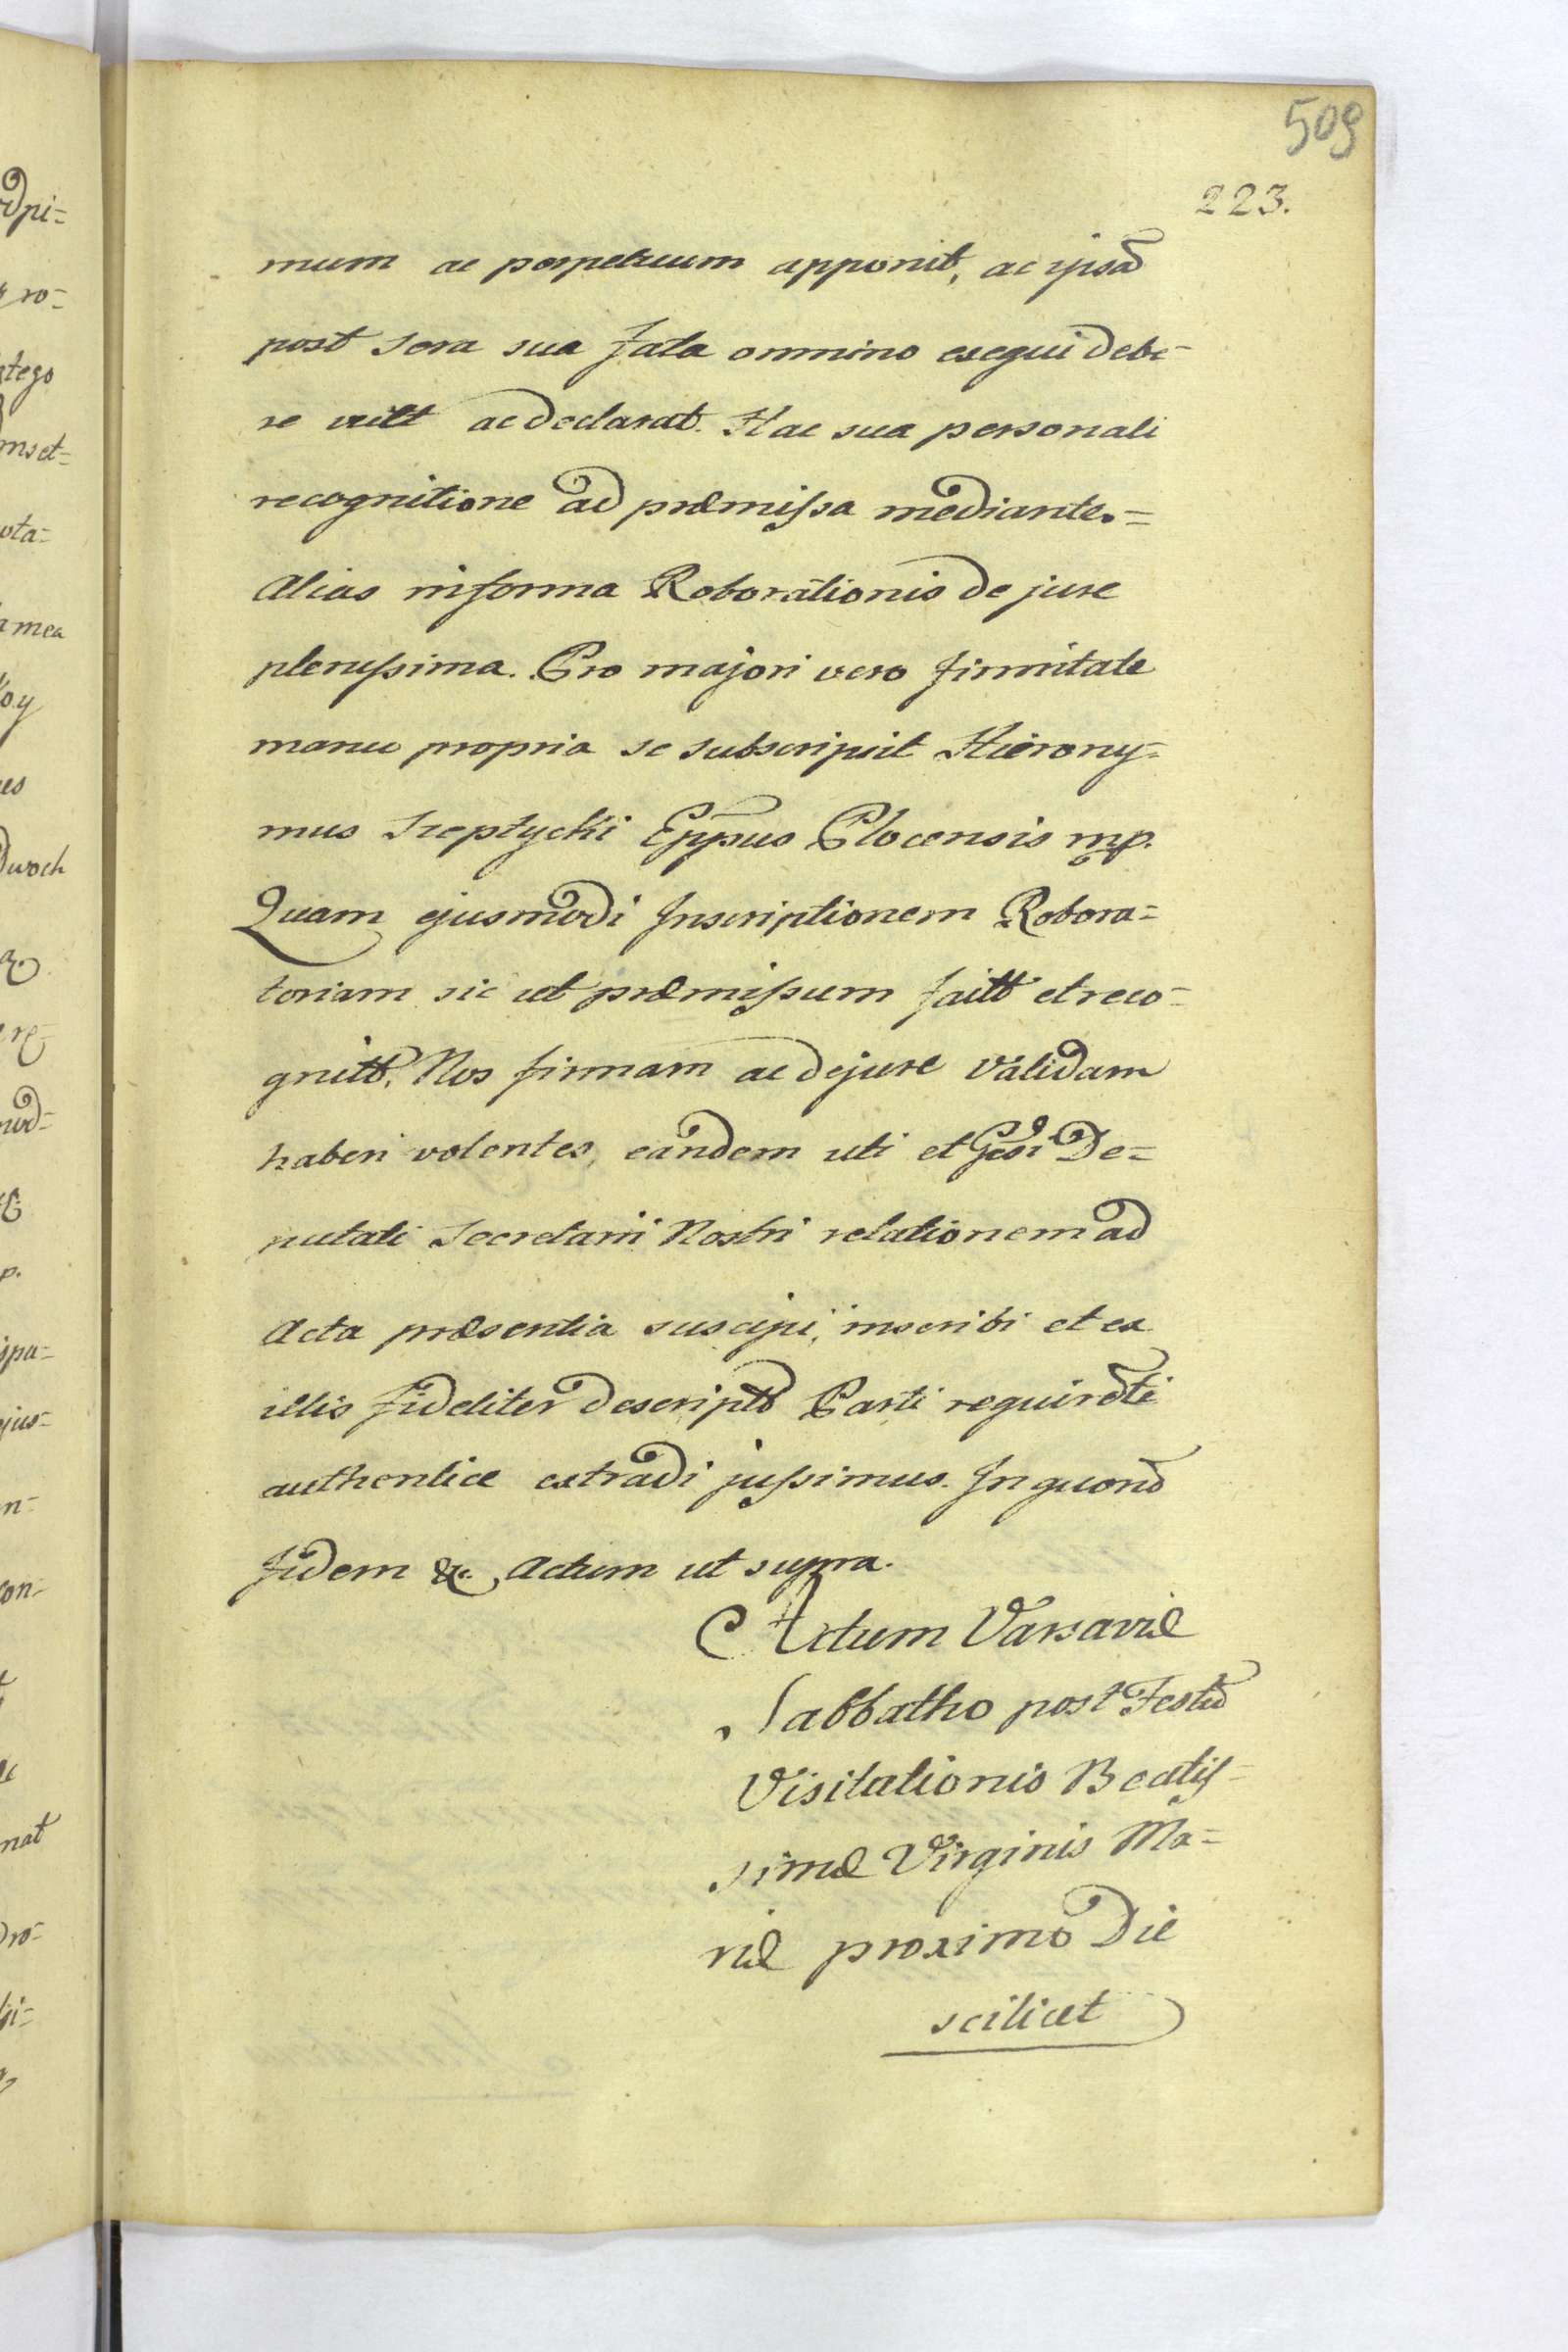 509
223.
mum ac perpetuum apponit, ac ipsā
post sera sua fata omnino exequi debe-
re vult ac declarat. Hac sua personali
recognitione ad præmissa mediante.=
Alias in forma Roborationis de jure
plenissima. Pro majori vero firmitate
manu propria se subscripsit Hierony-
mus Szeptycki Eppus Plocensis mp.
Quam ejusmodi Inscriptionem Robora=
toriam sic ut præmissum
et reco-
Nos firmam ac de jure validam
haberi volentes, eandem uti et Gsi De=
putati Secretarii Nostri relationem ad
Acta præsentia suscipi, inscribi et ex
illis fideliter descriptā Parti requirēti
authentice extradi jussimus. In quorū
fidem &c. Actum ut supra.
Actum Varsaviæ
Sabbatho post Festū
Visitationis Beatis-
simæ Virginis Ma=
riæ proximo Die
scilicet